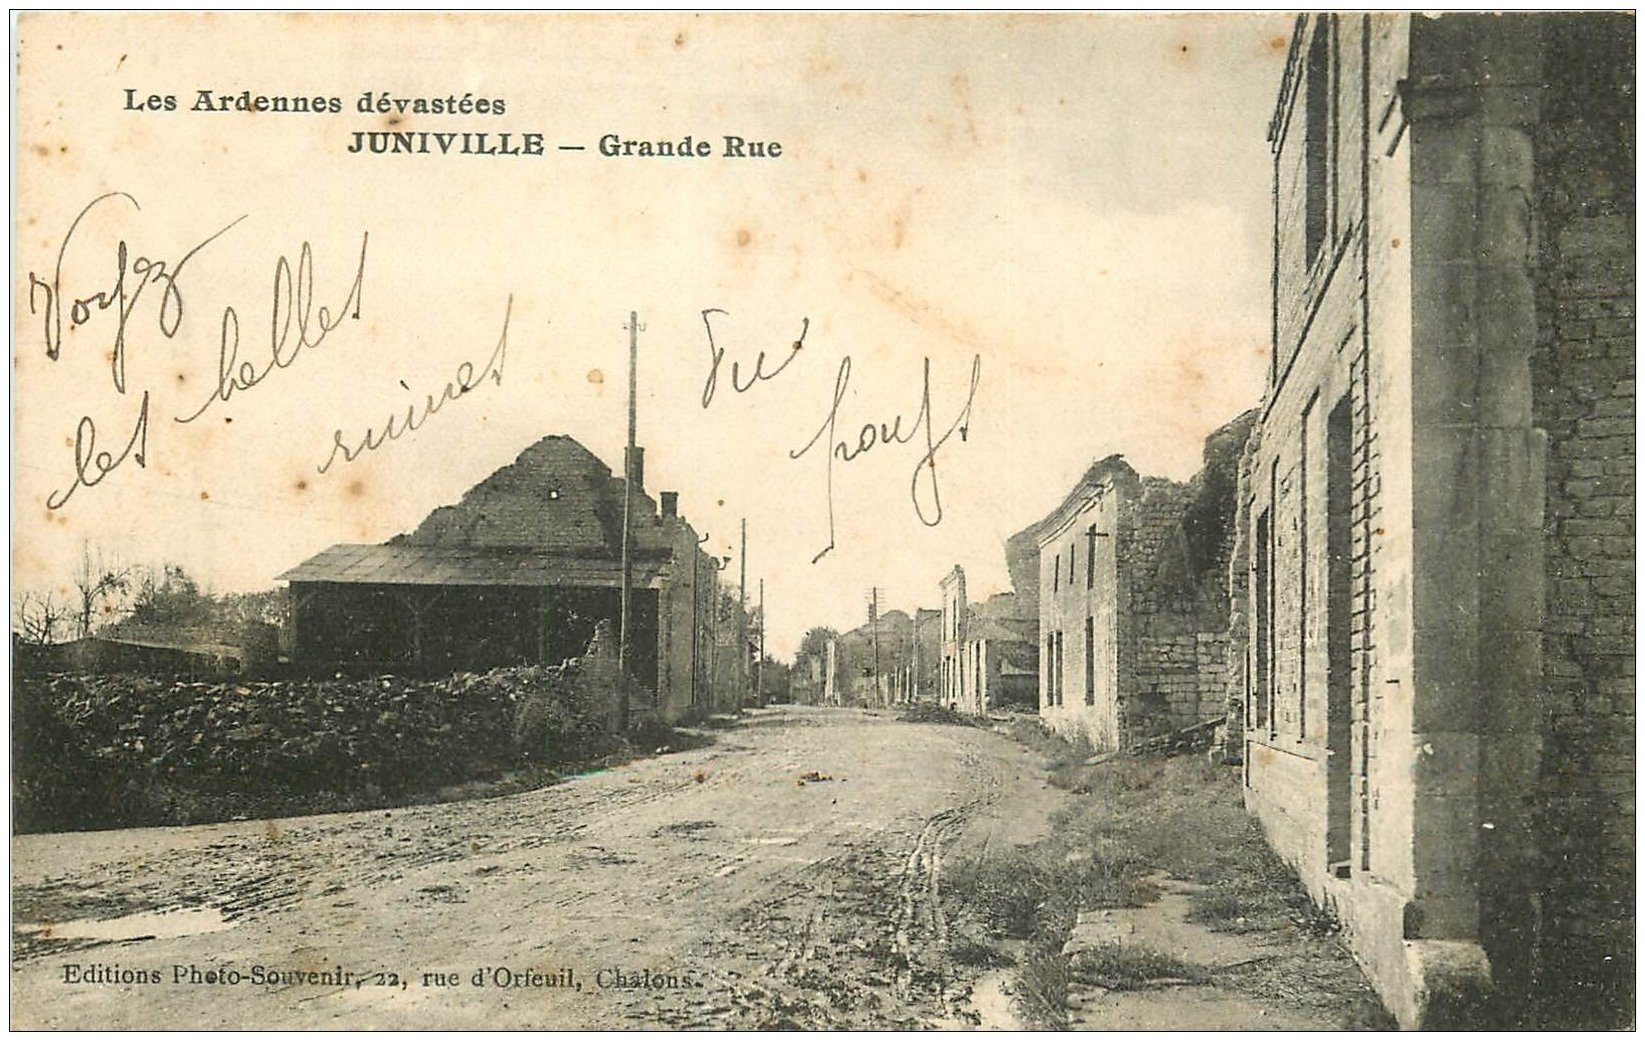 Les Ardennes dévastées
JUNIVILLE — Grande Rue
Voyez
les belles
ruines du
pays
Editions Photo-Souvenir, 22, rue d'Orfeuil, Châlons.